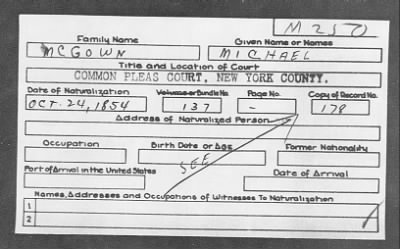 M 250
Family Name Given Name or Names
MCGOWN MICHAEL
Title and Location of Court
COMMON PLEAS COURT, NEW YORK COUNTY.
Date of Naturalization Volume or Bundle No. Page No. Copy of Record No.
OCT. 24, 1854 137 - 178
Address of Naturalized Person
Occupation Birth Date or Age Former Nationality
SEE
Port of Arrival in the United States Date of Arrival
Names, Addresses and Occupations of Witnesses To Naturalization
1
2